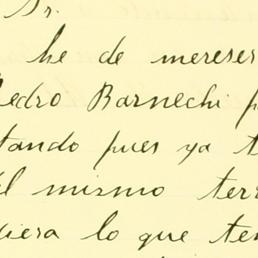 Sr.
he de mereser
Pedro Barnechi p
tando pues ya t
el mismo terr
diera lo que ten